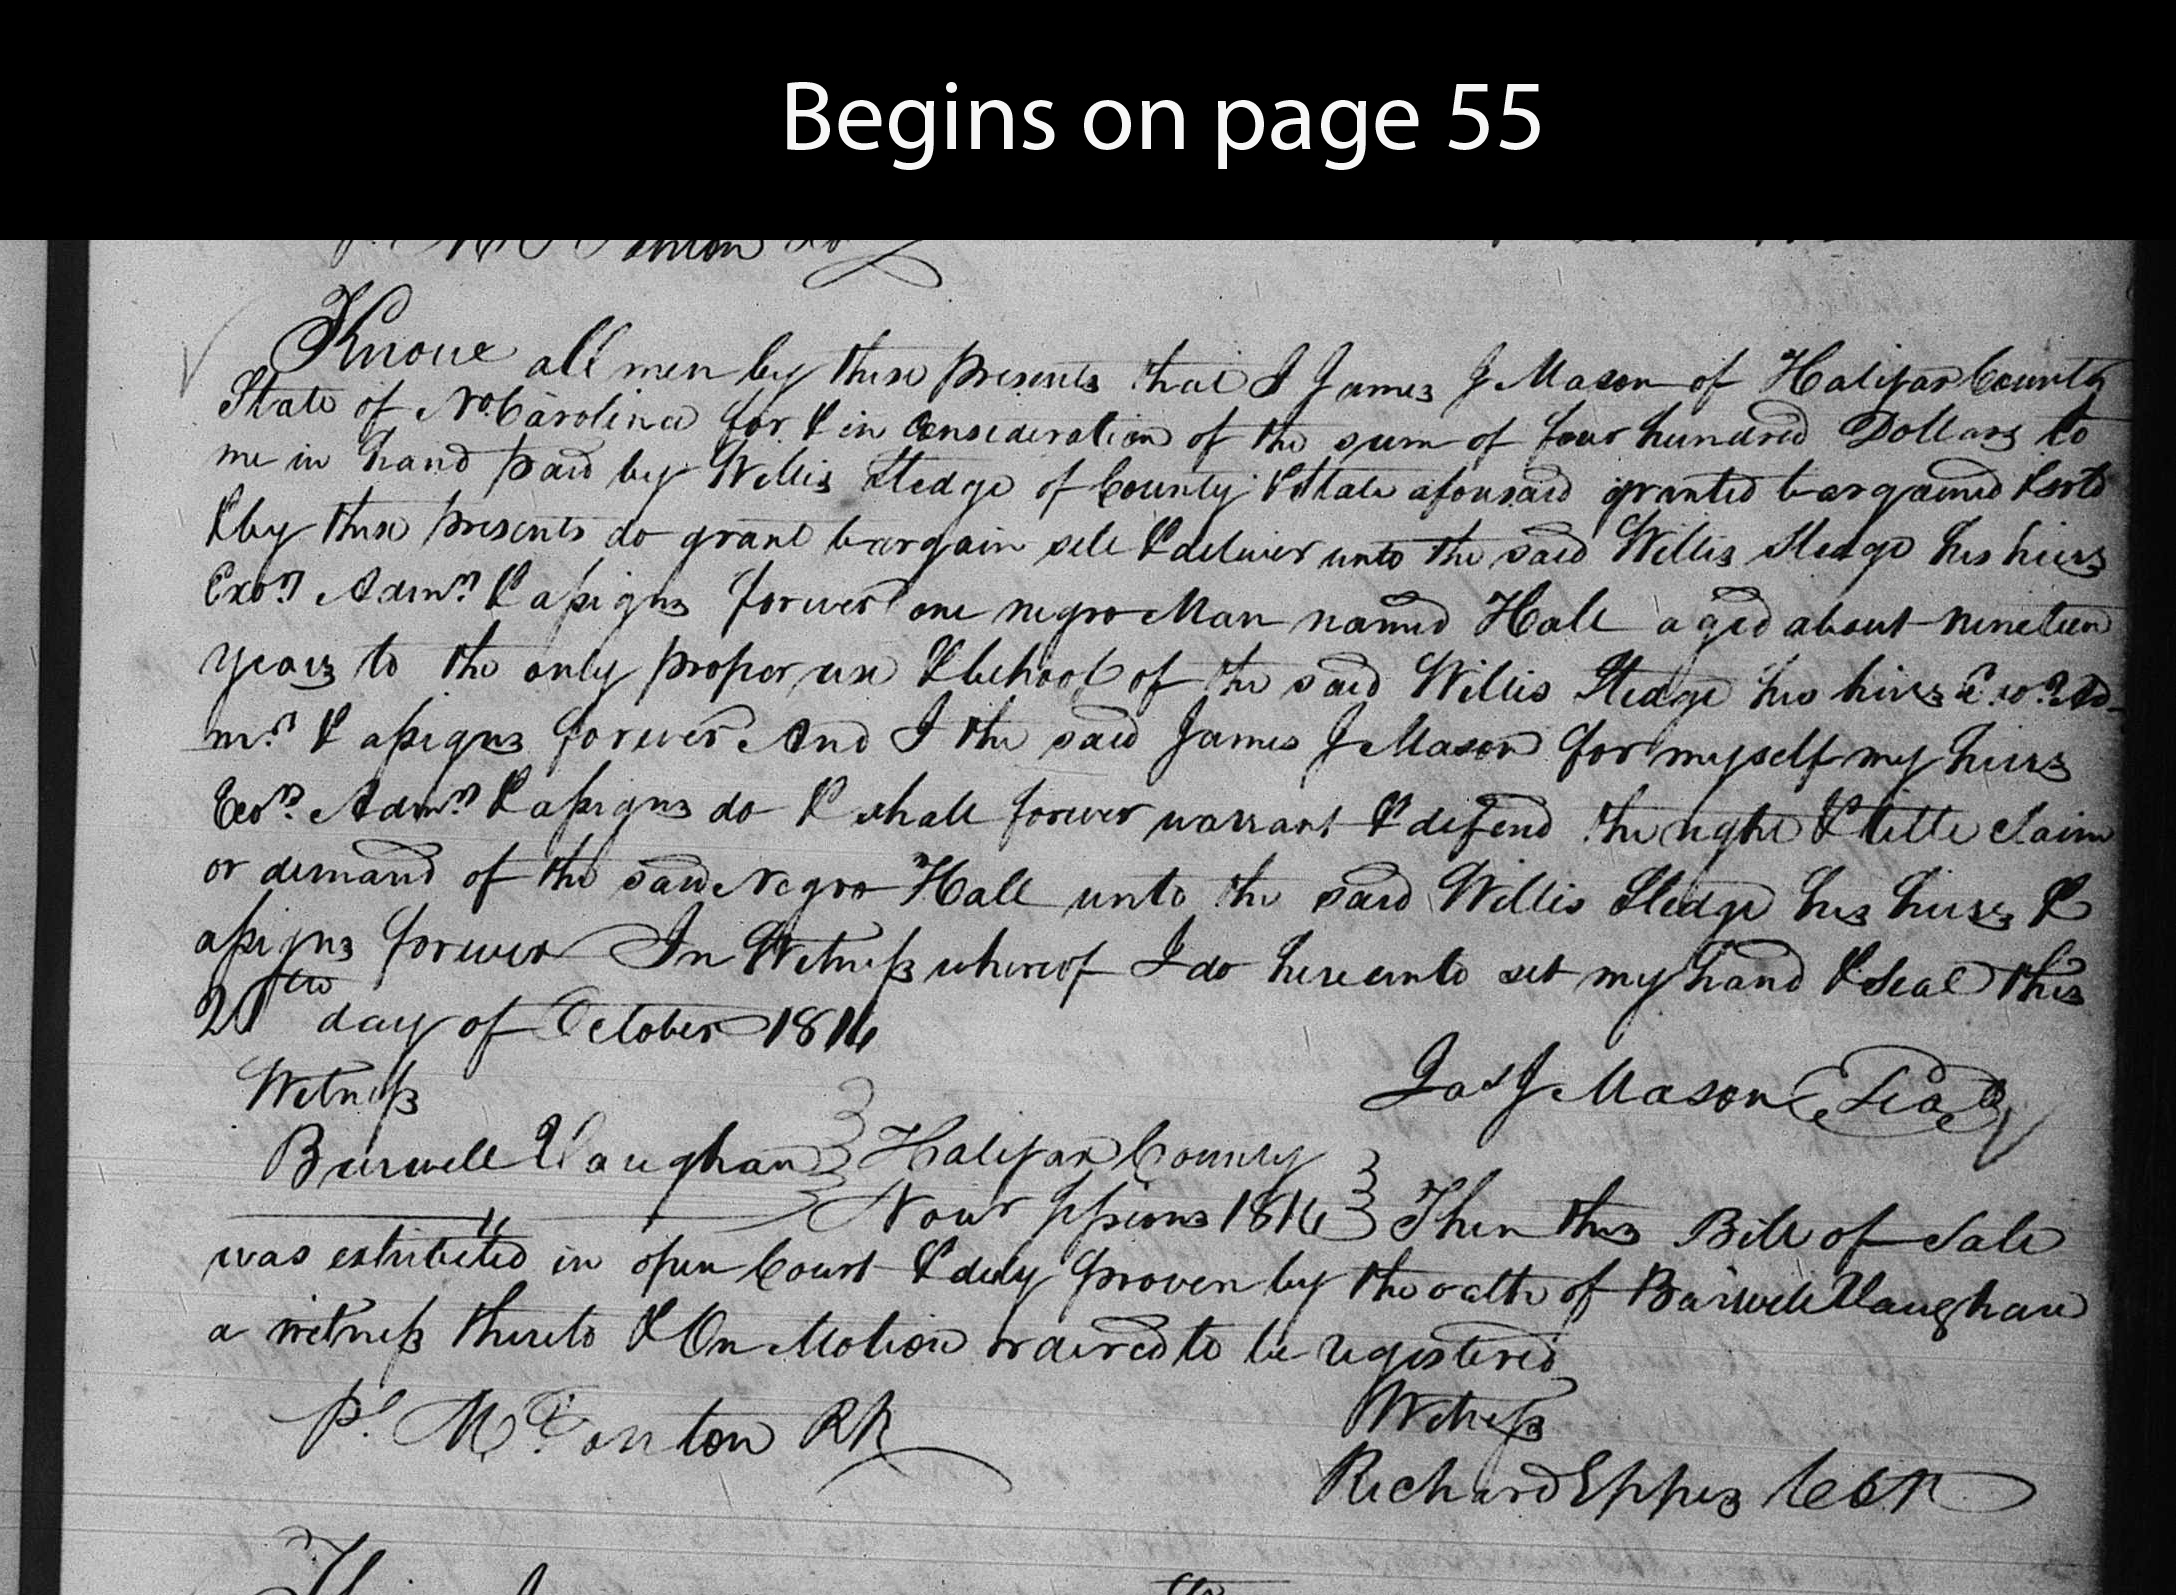 Begins on page 55
Know all men by these presents that I James J Mason of Halifax County
State of No. Carolina for & in consideration of the sum of four hundred Dollars to
me in hand paid by Willis Sledge of County & State aforesaid granted bargained & sold
& by these presents do grant bargain sell & deliver unto the said Willis Sledge his heirs
Exors Admrs & assigns forever one negro Man named Hall aged about nineteen
years to the only proper use & behoof of the said Willis Sledge his heirs Exors Ad-
mrs & assigns forever And I the said James J Mason for myself my heirs
Exors Admrs & assigns do & shall forever warrant & defend the right & title claim
or demand of the said Negro Hall unto the said Willis Sledge his heirs &
assigns forever In Witness whereof I do hereunto set my hand & seal this
day of October 1816
Witness
Jas J Mason Seal
Burwell Vaughan Halifax County
Novr Sessions 1816 Then this Bill of Sale
was exhibited in open Court & duly proven by the oath of Burwell Vaughan
a witness thereto & On Motion ordered to be registered
Witness
pr
Richard Eppes